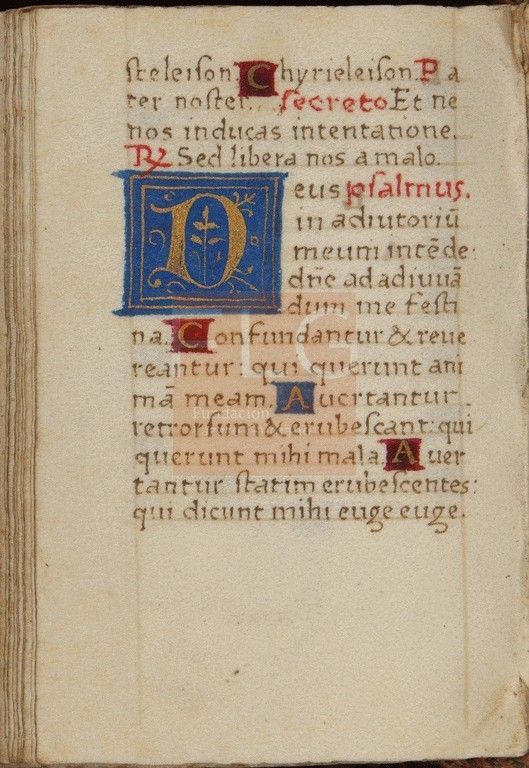 steleison. Chyrieleison. Pa
ter noster. secreto Et ne
nos inducas intentatione.
℟ Sed libera nos a malo.
Deus psalmus.
in adiutoriū
meum intēde·
dn̄e ad adiuuā
dum me festi
na. Confundantur & reue
reantur: qui querunt ani
mā meam. Auertantur
retrorsum & erubescant: qui
querunt mihi mala. Auer
tantur statim erubescentes:
qui dicunt mihi euge euge.
LG
Fundación